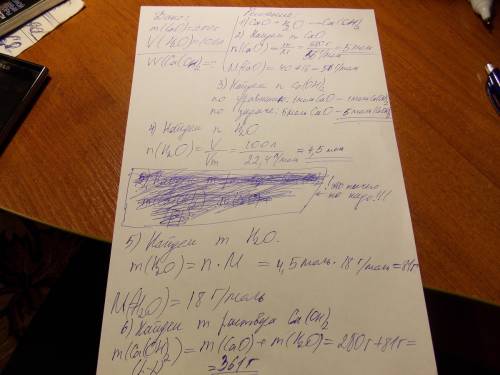 Дано:
m(CaO)=280г
V(H₂O)=100л
W(Ca(OH)₂)-?
Решение:
1) CaO + H₂O → Ca(OH)₂
2) Найдем n CaO
n(CaO) = m/M = 280г / 56 г/моль = 5 моль
M(CaO) = 40+16 = 56 г/моль
3) Найдем n Ca(OH)₂
по уравнению: 1моль CaO - 1моль Ca(OH)₂
по задаче: 5моль CaO - 5 моль Ca(OH)₂
4) Найдем n H₂O
n(H₂O) = V/Vm = 100л / 22,4 л/моль = 4,5 моль
не надо!!!
5) Найдем m H₂O.
m(H₂O) = n · M = 4,5моль · 18 г/моль = 81г
M(H₂O) = 18 г/моль
6) Найдем m раствора Ca(OH)₂
m(Ca(OH)₂) = m(CaO) + m(H₂O) = 280г + 81г =
= 361г